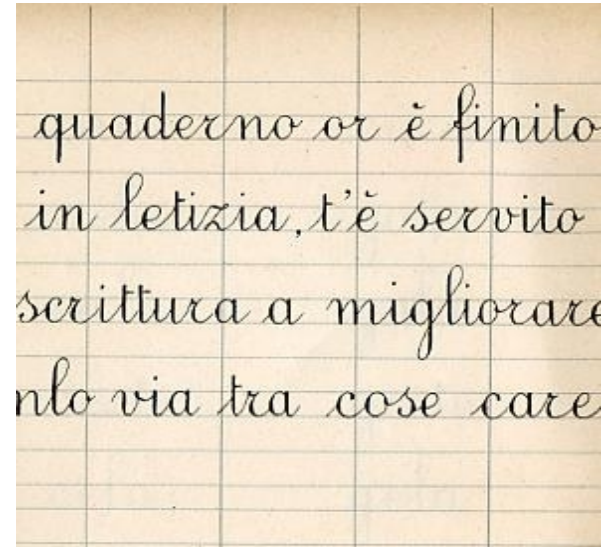 quaderno or è finito
in letizia, t'è servito
scrittura a migliorare
nlo via tra cose care